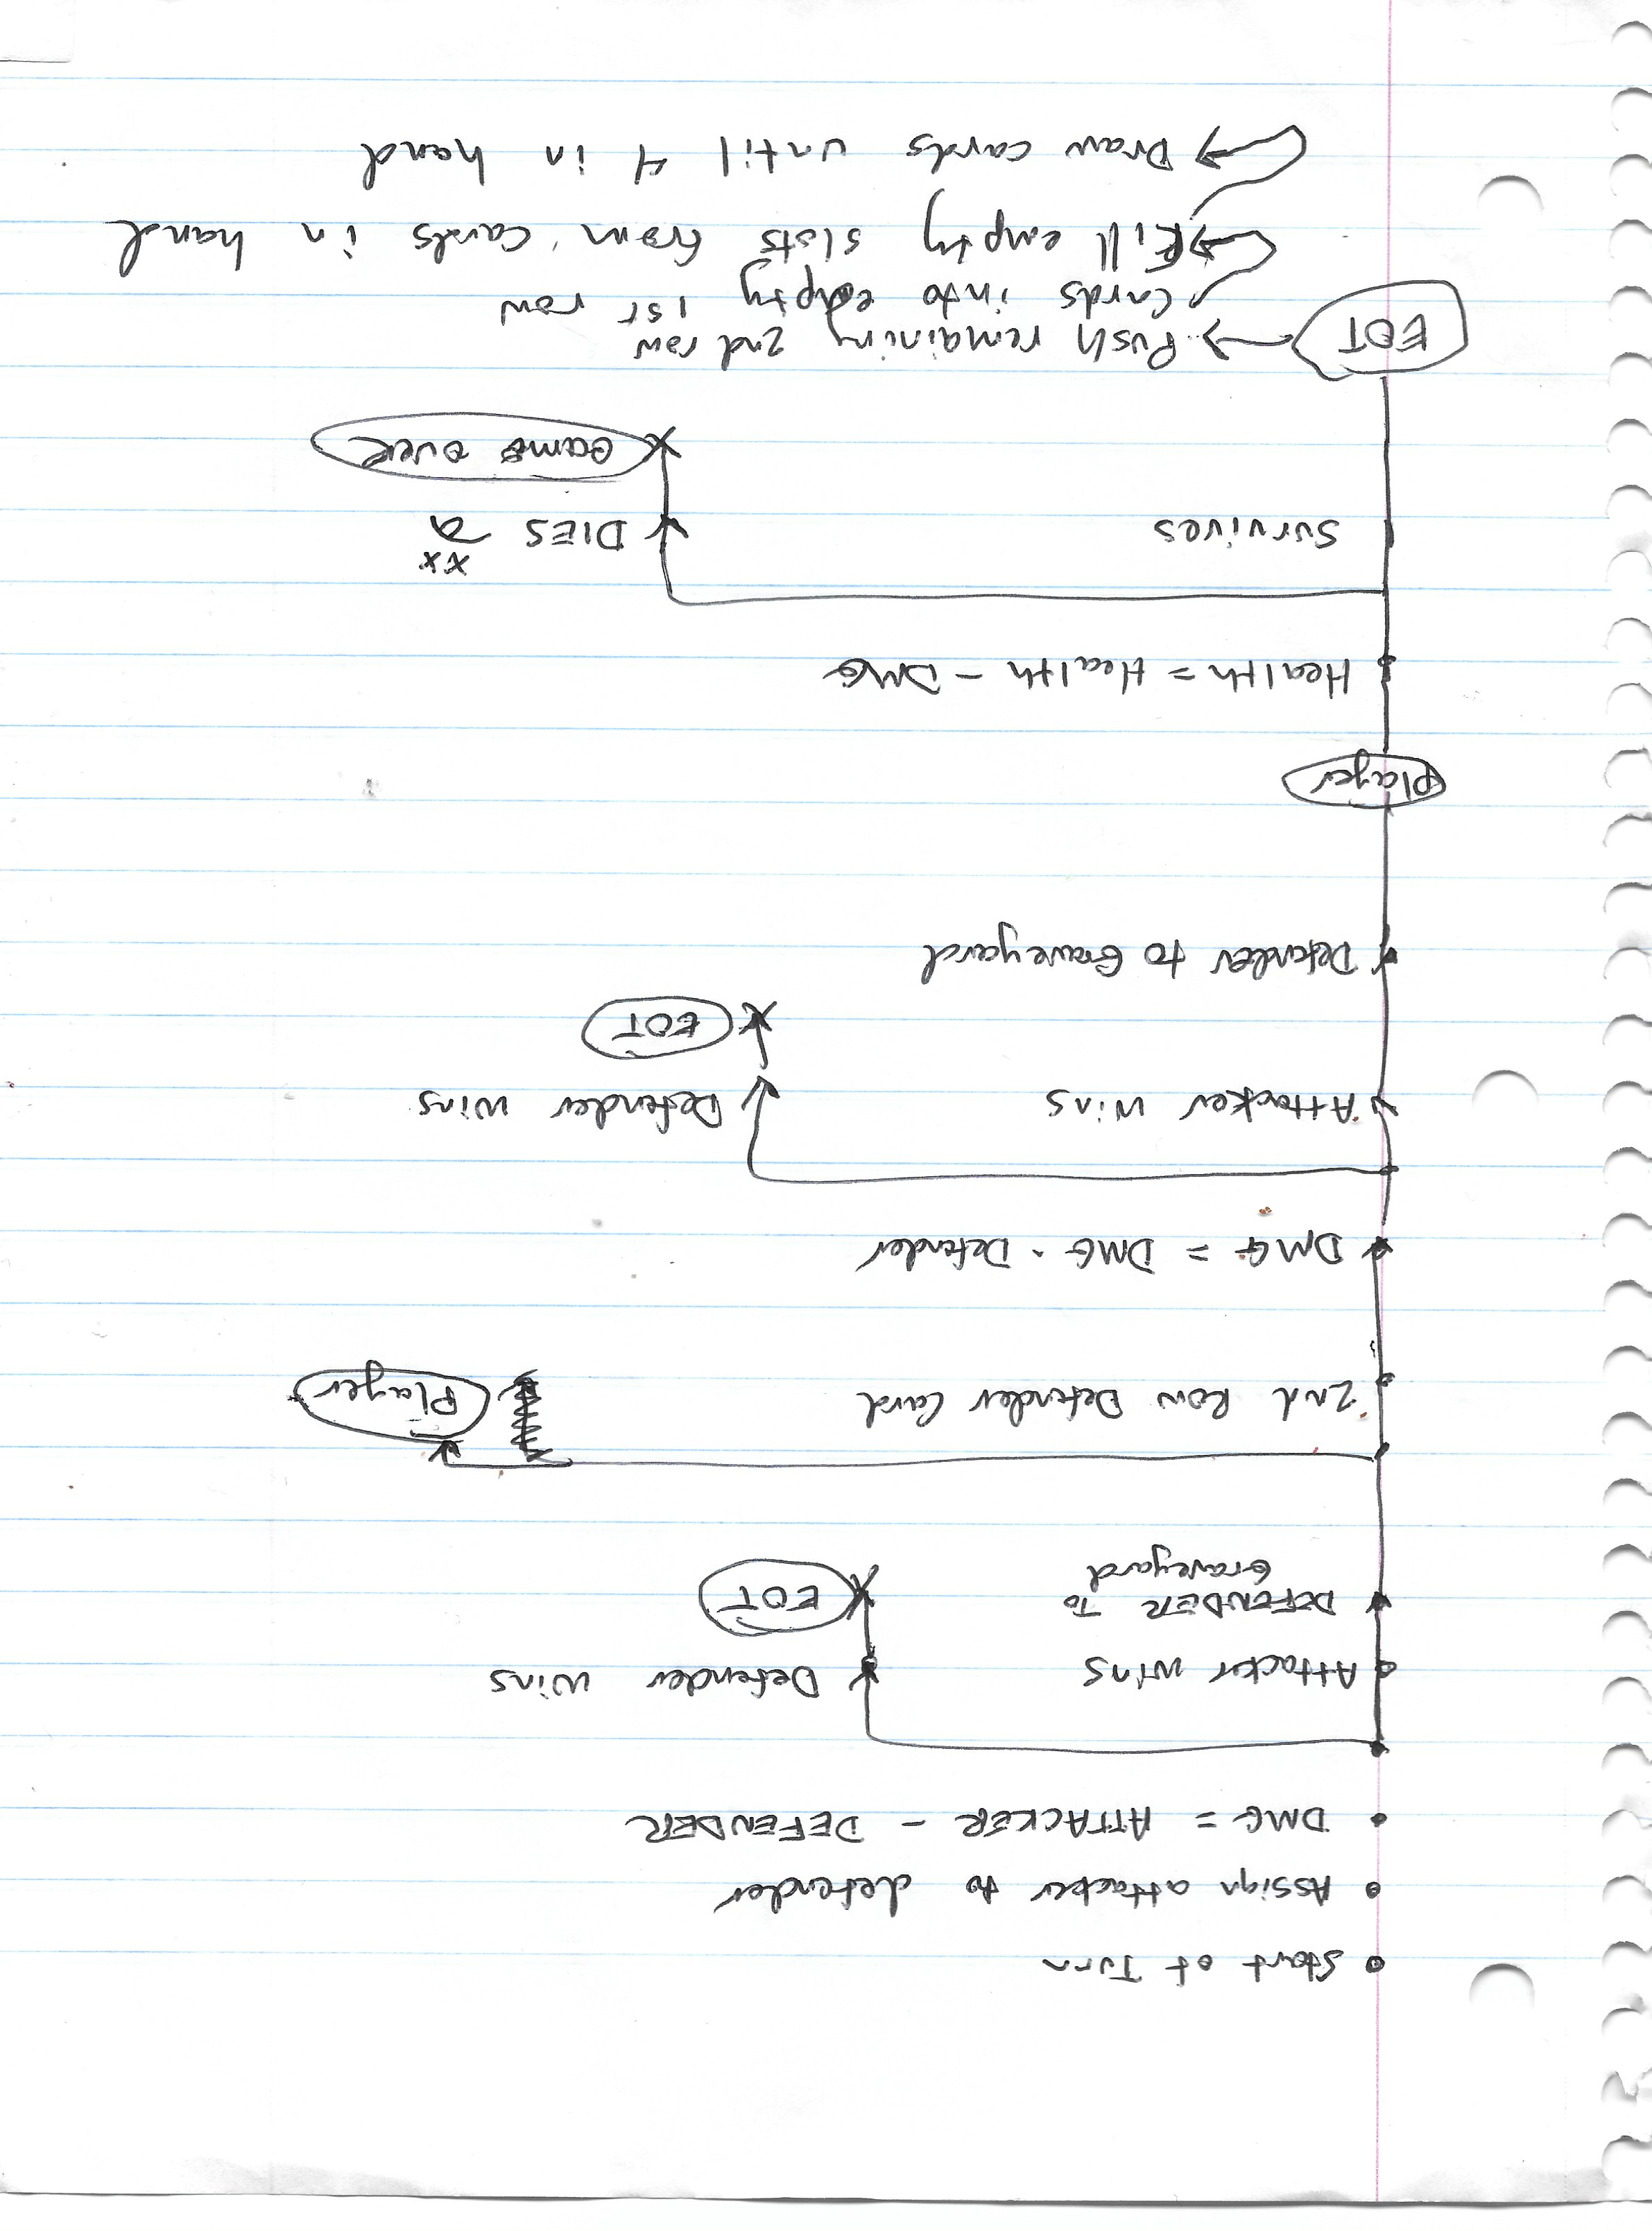 Start of Turn
Assign attacker to defender
DMG = ATTACKER - DEFENDER
Attacker wins
Defender wins
DEFENDER TO
Graveyard
EOT
2nd Row Defender Card
Player
DMG = DMG - Defender
Attacker wins
Defender wins
EOT
Defender to Graveyard
Player
Health = Health - DMG
Survives
DIES
Game over
EOT
Push remaining 2nd row
cards into empty 1st row
Fill empty slots from cards in hand
Draw cards until 4 in hand